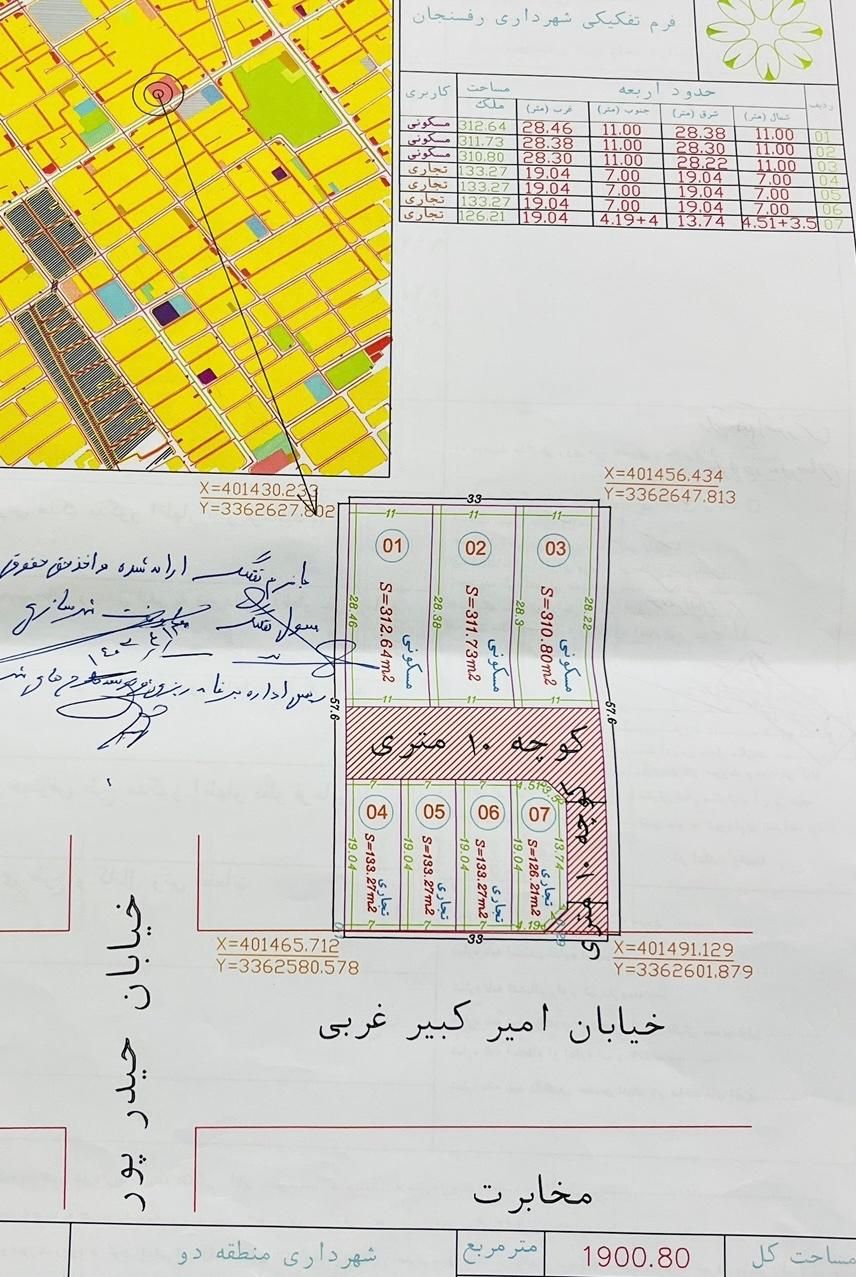 فرم تفکیکی شهرداری رفسنجان
ردیف حدود اربعه مساحت ملک کاربری
شمالی (متر) شرق (متر) جنوب (متر) غرب (متر)
01 11.00 28.38 11.00 28.46 312.64 مسکونی
02 11.00 28.30 11.00 28.38 311.73 مسکونی
03 11.00 28.22 11.00 28.30 310.80 مسکونی
04 7.00 19.04 7.00 19.04 133.27 تجاری
05 7.00 19.04 7.00 19.04 133.27 تجاری
06 7.00 19.04 7.00 19.04 133.27 تجاری
07 4.51+3.5 13.74 4.19+4 19.04 126.21 تجاری
X=401430.233
Y=3362627.802
X=401456.434
Y=3362647.813
33
11 11 11
01 02 03
28.46 S=312.64m2 مسکونی
28.38 S=311.73m2 مسکونی
28.3 S=310.80m2 مسکونی 28.22
11 11
57.6 57.6
کوچه ۱۰ متری
کوچه ۱۰ متری
7 7 7 4.51
04 05 06 07
19.04 S=133.27m2 تجاری
19.04 S=133.27m2 تجاری
19.04 S=133.27m2 تجاری
19.04 S=126.21m2 تجاری 13.74
7 7 7 4.19
33
X=401465.712
Y=3362580.578
X=401491.129
Y=3362601.879
خیابان امیر کبیر غربی
خیابان حیدر پور
مخابرت
مساحت کل 1900.80 مترمربع شهرداری منطقه دو